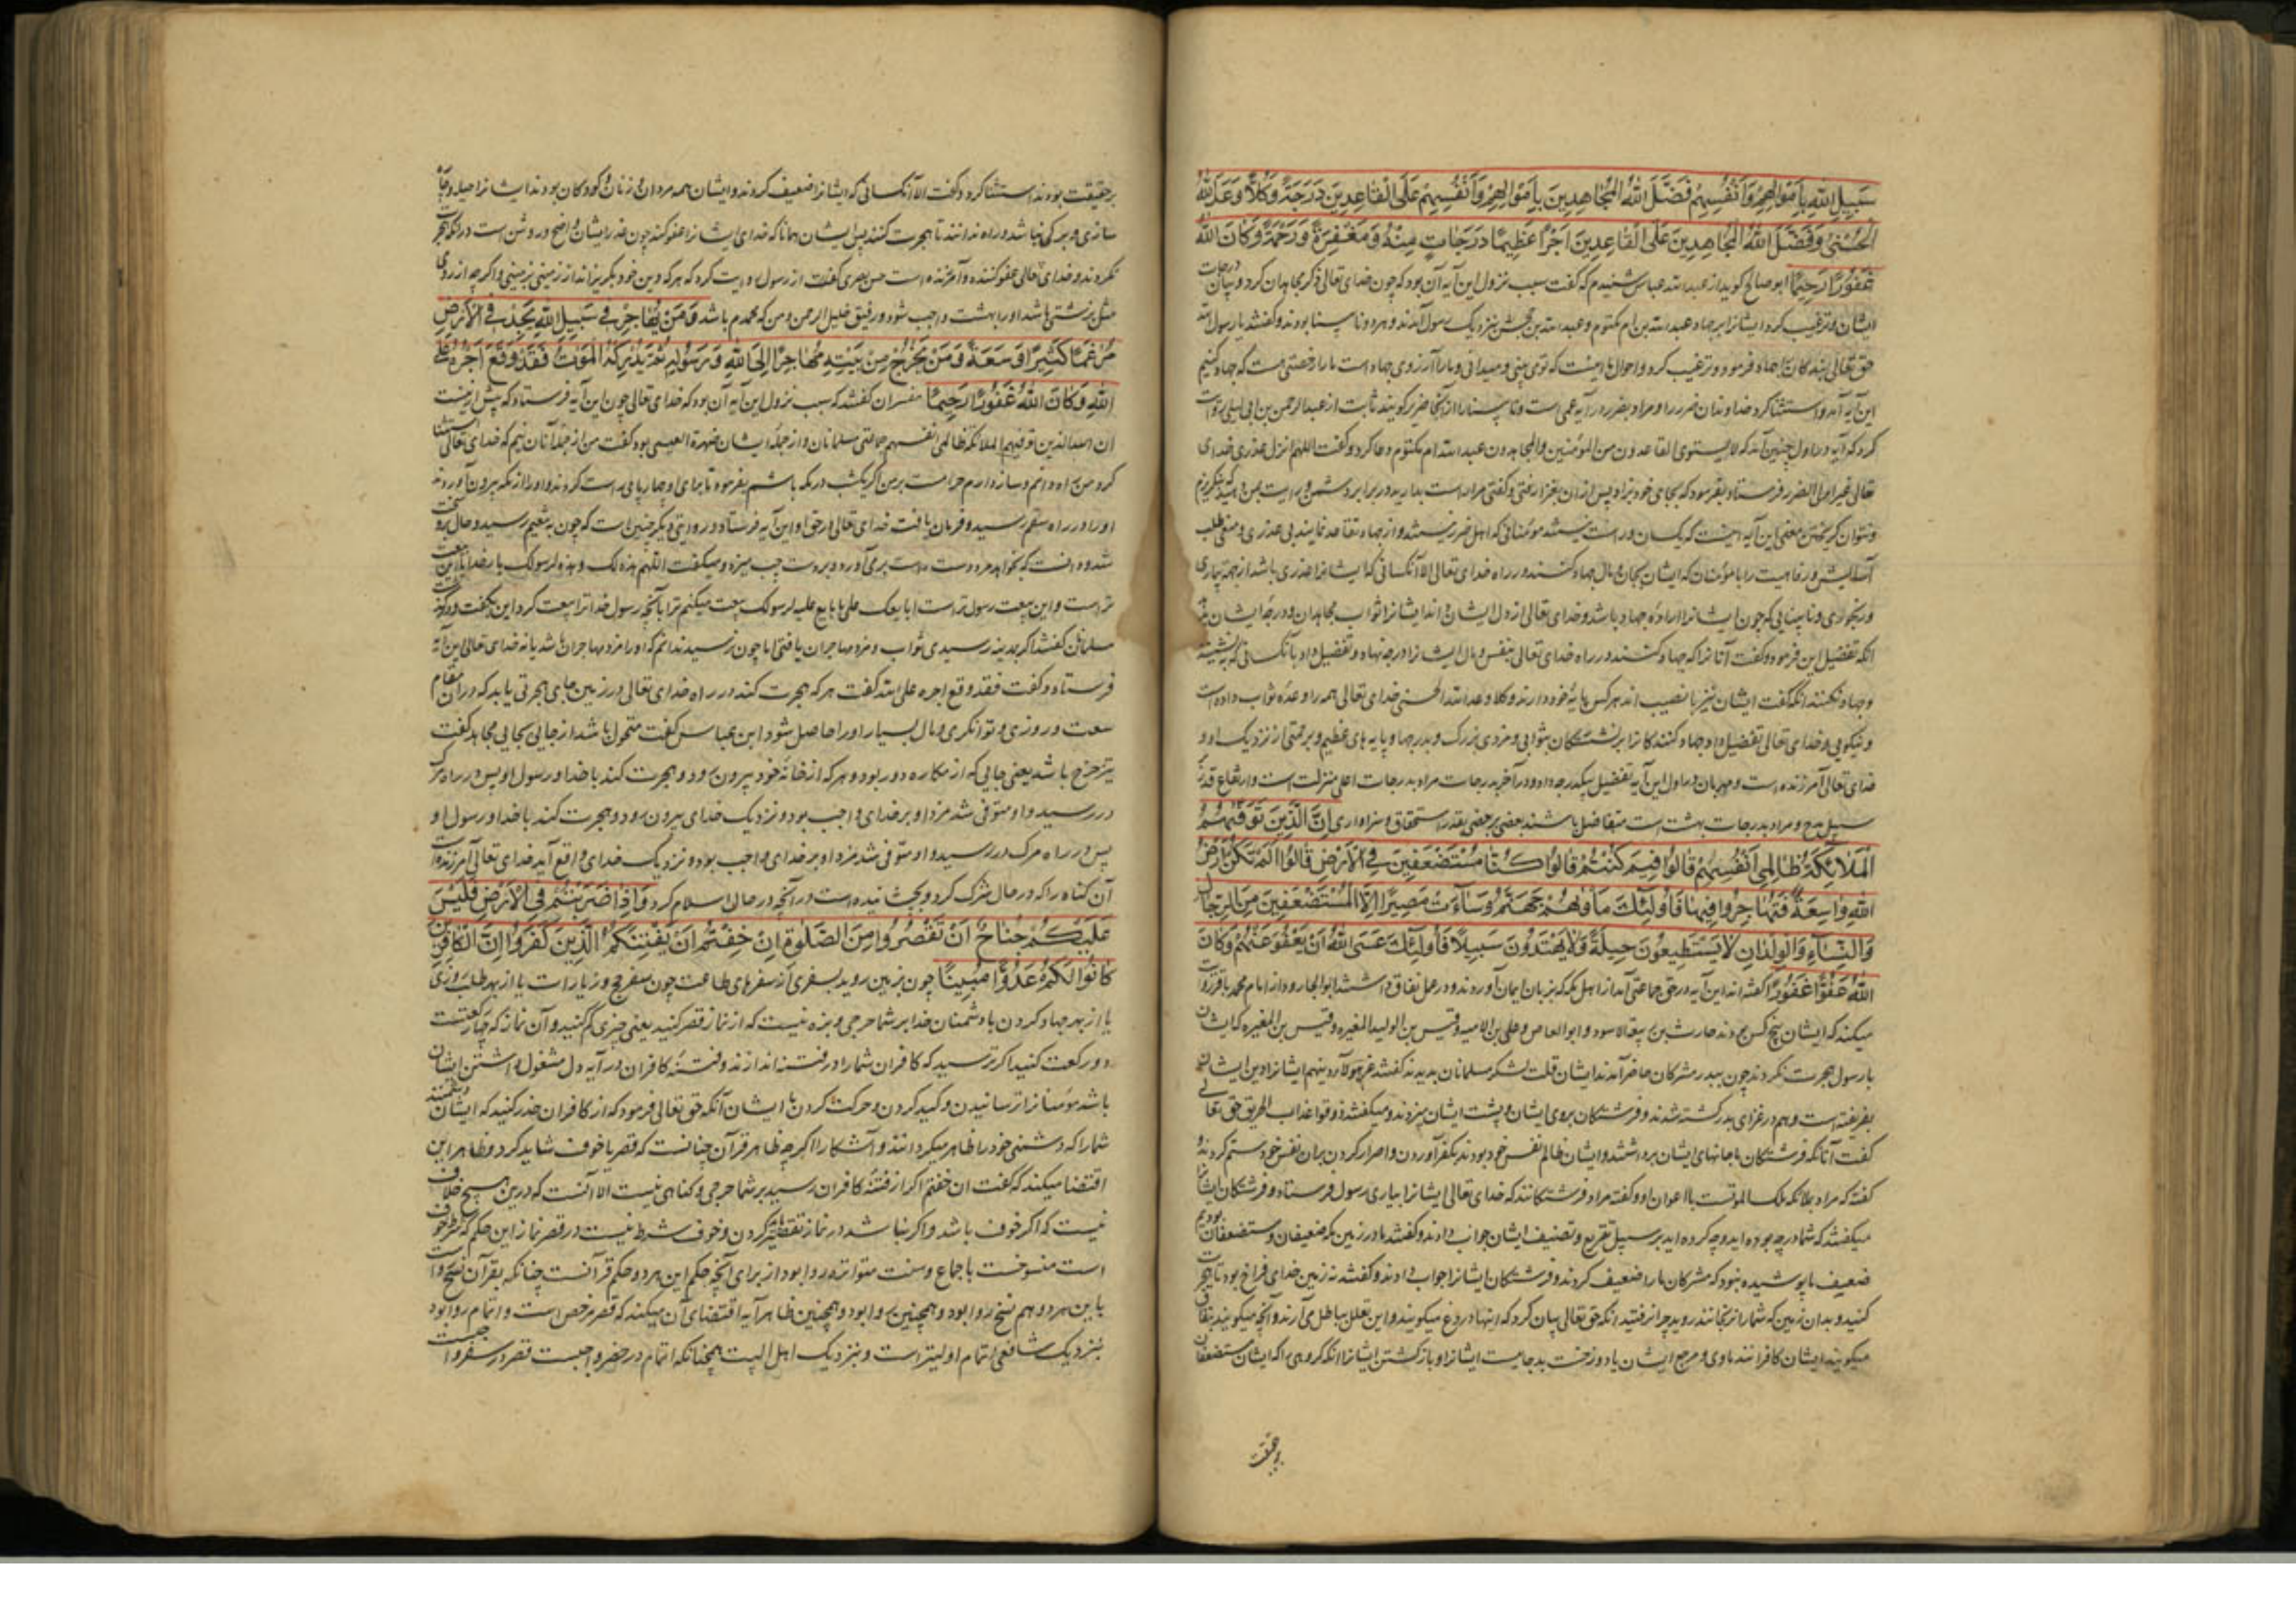 سَبِيلِ اللهِ بِأَمْوَالِهِمْ وَأَنْفُسِهِمْ فَضَّلَ اللهُ الْمُجَاهِدِينَ بِأَمْوَالِهِمْ وَأَنْفُسِهِمْ عَلَى الْقَاعِدِينَ دَرَجَةً وَكُلًّا وَعَدَ اللهُ
الْحُسْنَى وَفَضَّلَ اللهُ الْمُجَاهِدِينَ عَلَى الْقَاعِدِينَ اَجْرًا عَظِيمًا دَرَجَاتٍ مِنْهُ وَمَغْفِرَةً وَرَحْمَةً وَكَانَ اللهُ
غَفُورًا رَحِيمًا ابو صالح کوید از عبدالله عباس شنیدم که گفت سبب نزول این آیه آن بود که چون خدای تعالی ذکر مجاهدان کرد و بیان درجات
ایشان و ترغیب کرد ایشانرا بر جهاد عبدالله بن ام مکتوم و عبدالله بن جحش بنزدیک رسول آمدند و هر دو نابینا بودند و گفتند یا رسول الله
حق تعالی بندکانرا جهاد فرمود و ترغیب کرد و احوال ما اینست که تو می بینی و میدانی و ما را آرزوی جهاد است ما را رخصتی هست که جهاد کنیم
این آیه آمد و استثنا کرد خداوندان ضرر را و مراد بضرر در آیه عمی است و نابینا را از آنجا ضریر کویند ثابت از عبدالرحمن بن ابی لیلی روایت
کرد که آیه در اول چنین آمد که لا یستوی القاعدون من المؤمنین والمجاهدون عبدالله ام مکتوم دعا کرد و گفت اللهم انزل عذری خدای
تعالی غیر اولی الضرر فرستاد بفرمود که بجای خود برند و پس از آن بغزا رفتی و گفتی مرا رایت بدارید در برابر دشمن
و نتوان کریختن معنی این آیه اینست که یکسان و راست نیستند مؤمنانی که اهل ضرر نیستند و از جهاد تقاعد نمایند بی عذری و منفی طلب
آسایش و رفاهیت را با مؤمنان که ایشان بجان و مال جهاد کنند در راه خدای تعالی الا آنکسانی که ایشانرا عذری باشد از جهة بیماری
و رنجوری و نابینایی که چون ایشانرا اراده جهاد باشد و خدای تعالی از دل ایشان داند ایشانرا ثواب مجاهدان و درجه ایشان
انکه تفضیل این فرمود و گفت آنانرا که جهاد کنند در راه خدای تعالی بنفس و مال ایشانرا درجه نهاد و تفضیل داد بآنکسانی که بنشینند
و جهاد نکنند انکه گفت ایشان نیز با نصیب اند هر کس پایه خود دارند و کلا وعدالله الحسنی خدای تعالی همه را وعده ثواب داده است
و نیکویی و خدای تعالی تفضیل داد جهاد کنندکانرا بر نشستکان بثوابی و مزدی بزرک و بدرجها و پایه های عظیم و برحمتی از نزدیک او و
خدای تعالی آمرزنده است و مهربان در اول این آیه تفضیل بیکدرجه داد و در آخر بدرجات مراد بدرجات اعلی منزلت است و ارتفاع قدر
سبیل مدح و مراد بدرجات بهشت است متفاضل باشند بعضی بر بعضی بقدر استحقاق و سزاواری اِنَّ الَّذِينَ تَوَفَّيهُمُ
الْمَلَائِكَةُ ظَالِمِي اَنْفُسِهِمْ قَالُوا فِيمَ كُنْتُمْ قَالُوا كُنَّا مُسْتَضْعَفِينَ فِي الْاَرْضِ قَالُوا اَلَمْ تَكُنْ اَرْضُ
اللهِ وَاسِعَةً فَتُهَاجِرُوا فِيهَا فَاُولَئِكَ مَأْوَيهُمْ جَهَنَّمُ وَسَآءَتْ مَصِيرًا اِلَّا الْمُسْتَضْعَفِينَ مِنَ الرِّجَالِ
وَالنِّسَآءِ وَالْوِلْدَانِ لَا يَسْتَطِيعُونَ حِيلَةً وَلَا يَهْتَدُونَ سَبِيلًا فَاُولَئِكَ عَسَى اللهُ اَنْ يَعْفُوَ عَنْهُمْ وَكَانَ
اللهُ عَفُوًّا غَفُورًا گفته اند این آیه در حق جماعتی آمد از اهل مکه که بزبان ایمان آوردند و در عمل نفاق داشتند ابوالجارود از امام محمد باقر روایت
میکند که ایشان پنج کس بودند حارث بن ربیعة الاسود و ابوالعاص و علی بن الامیه و قیس بن الولید المغیره و قیس بن المغیره که ایشان
با رسول هجرت نکردند چون ببدر مشرکان حاضر آمدند ایشان قلت لشکر مسلمانان بدیدند گفتند غر هؤلاء دینهم ایشانرا دین ایشان
بفریفته است و هم در غزای بدر کشته شدند و فرشتکان بر روی ایشان و پشت ایشان میزدند و میگفتند ذوقوا عذاب الحریق حق تعالی
گفت آنانکه فرشتکان جانهای ایشان برداشتند و ایشان ظالم نفس خود بودند بکفر آوردن و اصرار کردن بران نفس خود ستم کردند و
گفته که مراد بملائکه ملک الموتست با اعوان او و گفته مراد فرشتکانند که خدای تعالی ایشانرا بیاری رسول فرستاد و فرشتکان ایشانرا
میگفتند که شما در چه بوده اید و چه کرده اید بر سبیل تقریع و تصنیف ایشان جواب دادند و گفتند ما در زمین مکه ضعیفان و مستضعفان بودیم
ضعیف ما پوشیده نبود که مشرکان ما را ضعیف کردند و فرشتکان ایشانرا جواب دادند و گفتند نه زمین خدای فراخ بود تا هجرت
کنید و بدان زمین که شما را رنجانند روید چرا نرفتید انکه حق تعالی بیان کرد که اینها دروغ میکویند و این تعلل بباطل می آرند و آنچه میکویند بنفاق
میکویند ایشان کافرانند ماوی و مرجع ایشان با دوزخست بد جاییست ایشانرا و باز کشتن ایشانرا انکه کروهی را که ایشان مستضعفان
بر حقیقت
بر حقیقت بودند استثنا کرد و گفت الا آنکسانی که ایشانرا ضعیف کردند و ایشان همه مردان و زنان و کودکان بودند ایشانرا حیله و چاره
سازی و برگی نباشد و راه ندانند تا هجرت کنند پس ایشان همانا که خدای ایشانرا عفو کند چون عذر ایشان واضح و روشن است در آنکه هجرت
نکردند و خدای تعالی عفو کننده و آمرزنده است حسن بصری گفت از رسول روایت کرد که هر که دین خود بکریزاند از زمینی بزمینی و اگر چه از روی
مثل بزشتی باشد او را بهشت واجب شود و رفیق خلیل الرحمن و من که محمدم باشد وَمَنْ يُهَاجِرْ فِي سَبِيلِ اللهِ يَجِدْ فِي الْاَرْضِ
مُرَاغَمًا كَثِيرًا وَسَعَةً وَمَنْ يَخْرُجْ مِنْ بَيْتِهِ مُهَاجِرًا اِلَى اللهِ وَرَسُولِهِ ثُمَّ يُدْرِكْهُ الْمَوْتُ فَقَدْ وَقَعَ اَجْرُهُ عَلَى
اللهِ وَكَانَ اللهُ غَفُورًا رَحِيمًا مفسران گفتند که سبب نزول این آیه آن بود که خدای تعالی چون این آیه فرستاد که پیش ازینست
ان الذین توفیهم الملائکة ظالمی انفسهم جماعتی مسلمانان و از جمله ایشان ضمرة العیسی بود گفت من از جمله آنان نیم که خدای تعالی استثنا
کرد من راه دانم و ساز دارم حرامست بر من اگر یکشب در مکه باشم بفرمود تا برای او چهارپایی راست کردند و او را از مکه بیرون آوردند
او را در راه مرک رسید و فرمان یافت خدای تعالی در حق او این آیه فرستاد و در روایتی دیگر چنین است که چون به تنعیم رسید و حال برو سخت
شد و دانست که بخواهد مرد دست راست بر می آورد و بر دست چپ میزد و میگفت اللهم هذه لک و هذه لرسولک بار خدایا این بیعت
تراست و این بیعت رسول تراست ابایعک علی ما بایع علیه رسولک بیعت میکنم ترا بآنچه رسول خدا ترا بیعت کرد این بگفت و درگذشت
مسلمانان گفتند اگر بمدینه رسیدی ثواب و مزد مهاجران یافتی اما چون نرسید ندانم که او را مزد مهاجران باشد یا نه خدای تعالی این آیه
فرستاد و گفت فقد وقع اجره علی الله گفت هر که هجرت کند در راه خدای تعالی در زمین جای هجرتی یابد که در آن مقام
سعت و روزی و توانکری و مال بسیار او را حاصل شود ابن عباس گفت متحول باشد از جایی بجایی مجاهد گفت
متزحزح باشد یعنی جایی که از مکاره دور بود و هر که از خانه خود بیرون رود و هجرت کند با خدا و رسول او پس در راه مرک
در رسید و او متوفی شد مزد او بر خدای واجب بود و نزدیک خدای بیرون رود و هجرت کند با خدا و رسول او
پس در راه مرک در رسید و او متوفی شد مزد او بر خدای واجب بود و نزدیک خدای واقع آید خدای تعالی آمرزنده است
آن گناه را که در حال شرک کرد و بخشاینده است در آنچه در حال اسلام کرد وَاِذَا ضَرَبْتُمْ فِي الْاَرْضِ فَلَيْسَ
عَلَيْكُمْ جُنَاحٌ اَنْ تَقْصُرُوا مِنَ الصَّلٰوةِ اِنْ خِفْتُمْ اَنْ يَفْتِنَكُمُ الَّذِينَ كَفَرُوا اِنَّ الْكَافِرِينَ
كَانُوا لَكُمْ عَدُوًّا مُبِينًا چون بزمین روید بسفری از سفرهای طاعت چون سفر حج و زیارات یا از بهر طلب روزی
یا از بهر جهاد کردن با دشمنان خدا بر شما حرجی و بزه نیست که از نماز قصر کنید یعنی چیزی کم کنید و آن نماز که چهار رکعتست
دو رکعت کنید اگر ترسید که کافران شما را در فتنه اندازند و فتنه کافران در آیه دل مشغول داشتن ایشان
باشد مؤمنانرا ترسانیدن و کید کردن و حرکت کردن با ایشان آنکه حق تعالی فرمود که از کافران حذر کنید که ایشان دشمنند
شما را که دشمنی خود را ظاهر میکردانند و آشکارا اگر چه ظاهر قرآن چنانست که قصر با خوف شاید کرد و ظاهر این
اقتضا میکند که گفت ان خفتم اگر از فتنه کافران رسید بر شما حرجی و گناهی نیست الا آنست که درین هیچ خلاف
نیست که اگر خوف باشد و اگر نباشد در نماز تقصیر کردن و خوف شرط نیست در قصر نماز این حکم که شرط خوف
است منسوخست باجماع و سنت متواتره روا بود از برای آنچه حکم این هر دو حکم قرآنست چنانکه بقرآن نسخ روا
باین هر دو هم نسخ روا بود و همچنین روا بود و همچنین ظاهر آیه اقتضای آن میکند که قصر رخص است و اتمام روا بود
بنزدیک شافعی اتمام اولیتر است و بنزدیک اهل البیت همچنانکه اتمام در حضر واجبست قصر در سفر واجبست